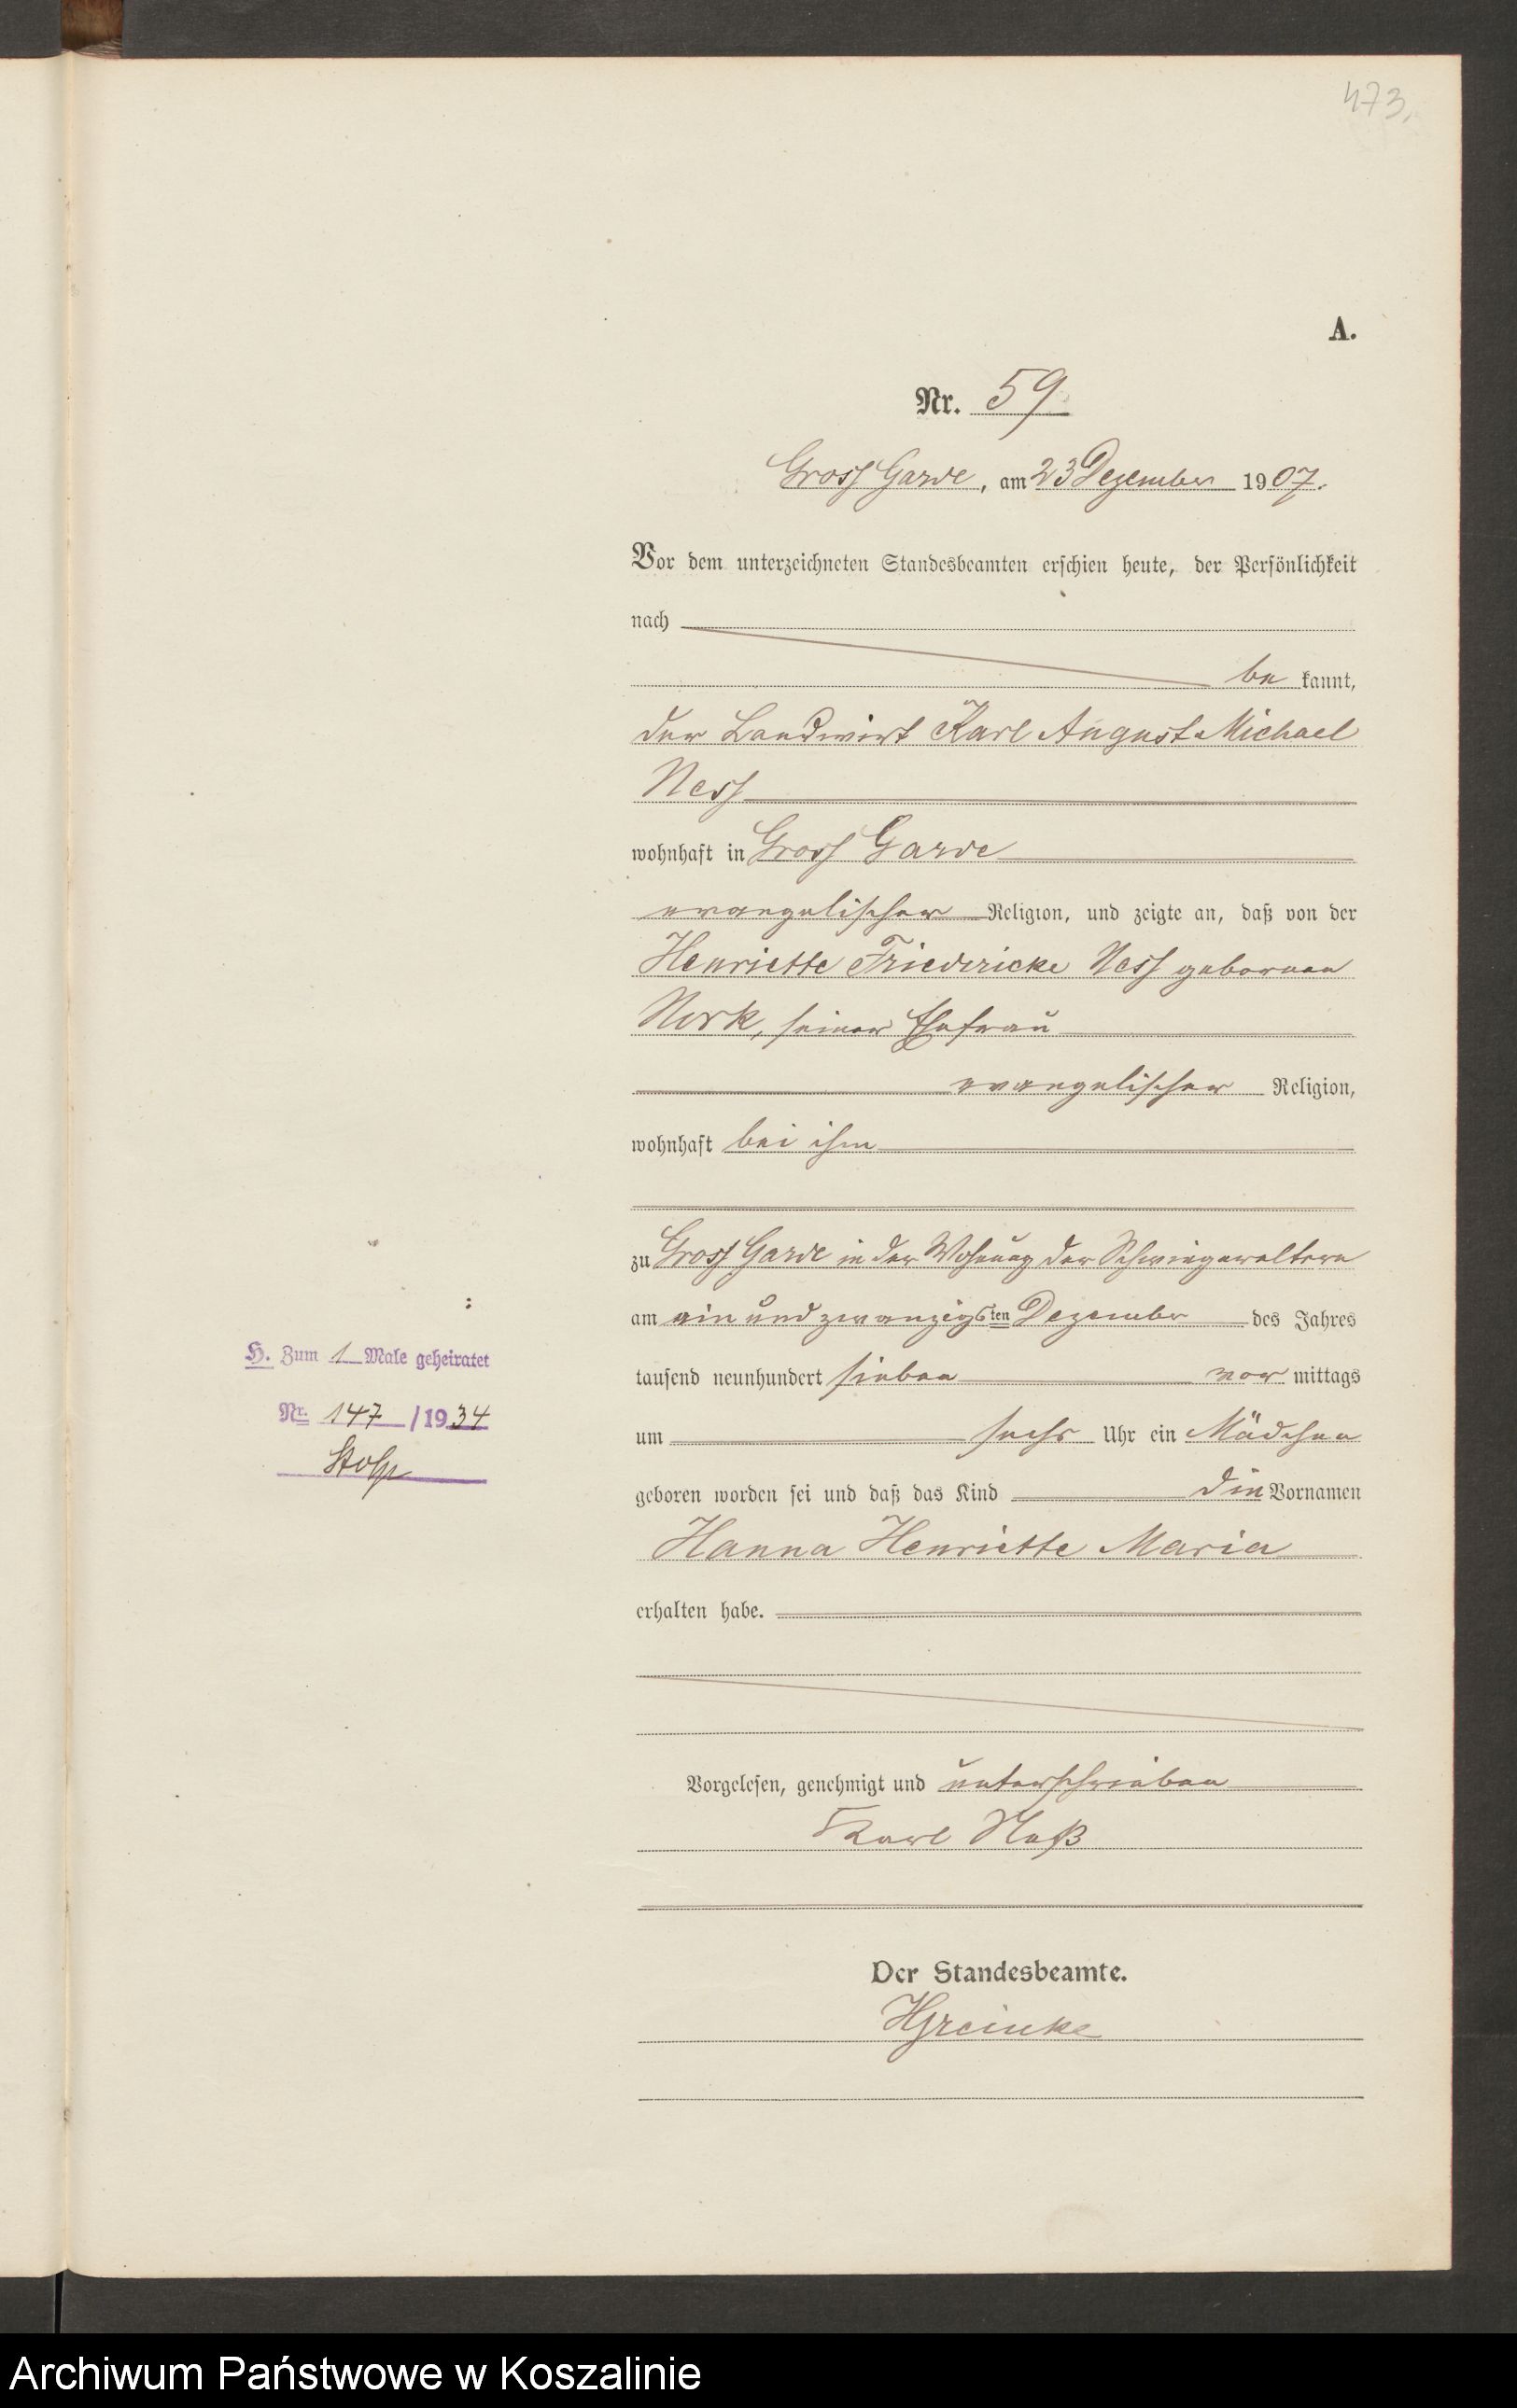 473.
A.
Nr. 59
Gross Garde, am 23 Dezember 1907.
Vor dem unterzeichneten Standesbeamten erschien heute, der Persönlichkeit
nach
be kannt,
der Landwirt Karl August Michael
Ness
wohnhaft in Gross Garde
evangelischer Religion, und zeigte an, daß von der
Henriette Friedericke Ness geborenen
Nork, seiner Ehefrau
evangelischer Religion,
wohnhaft bei ihm
zu Gross Garde in der Wohnung der Schwiegereltern
am ein und zwanzigsten Dezember des Jahres
H. Zum 1 Male geheiratet
tausend neunhundert sieben vor mittags
Nr. 147 /1934
um sechs Uhr ein Mädchen
Stolp
geboren worden sei und daß das Kind die Vornamen
Hanna Henriette Maria
erhalten habe.
Vorgelesen, genehmigt und unterschrieben
Karl Neß
Der Standesbeamte.
Archiwum Państwowe w Koszalinie